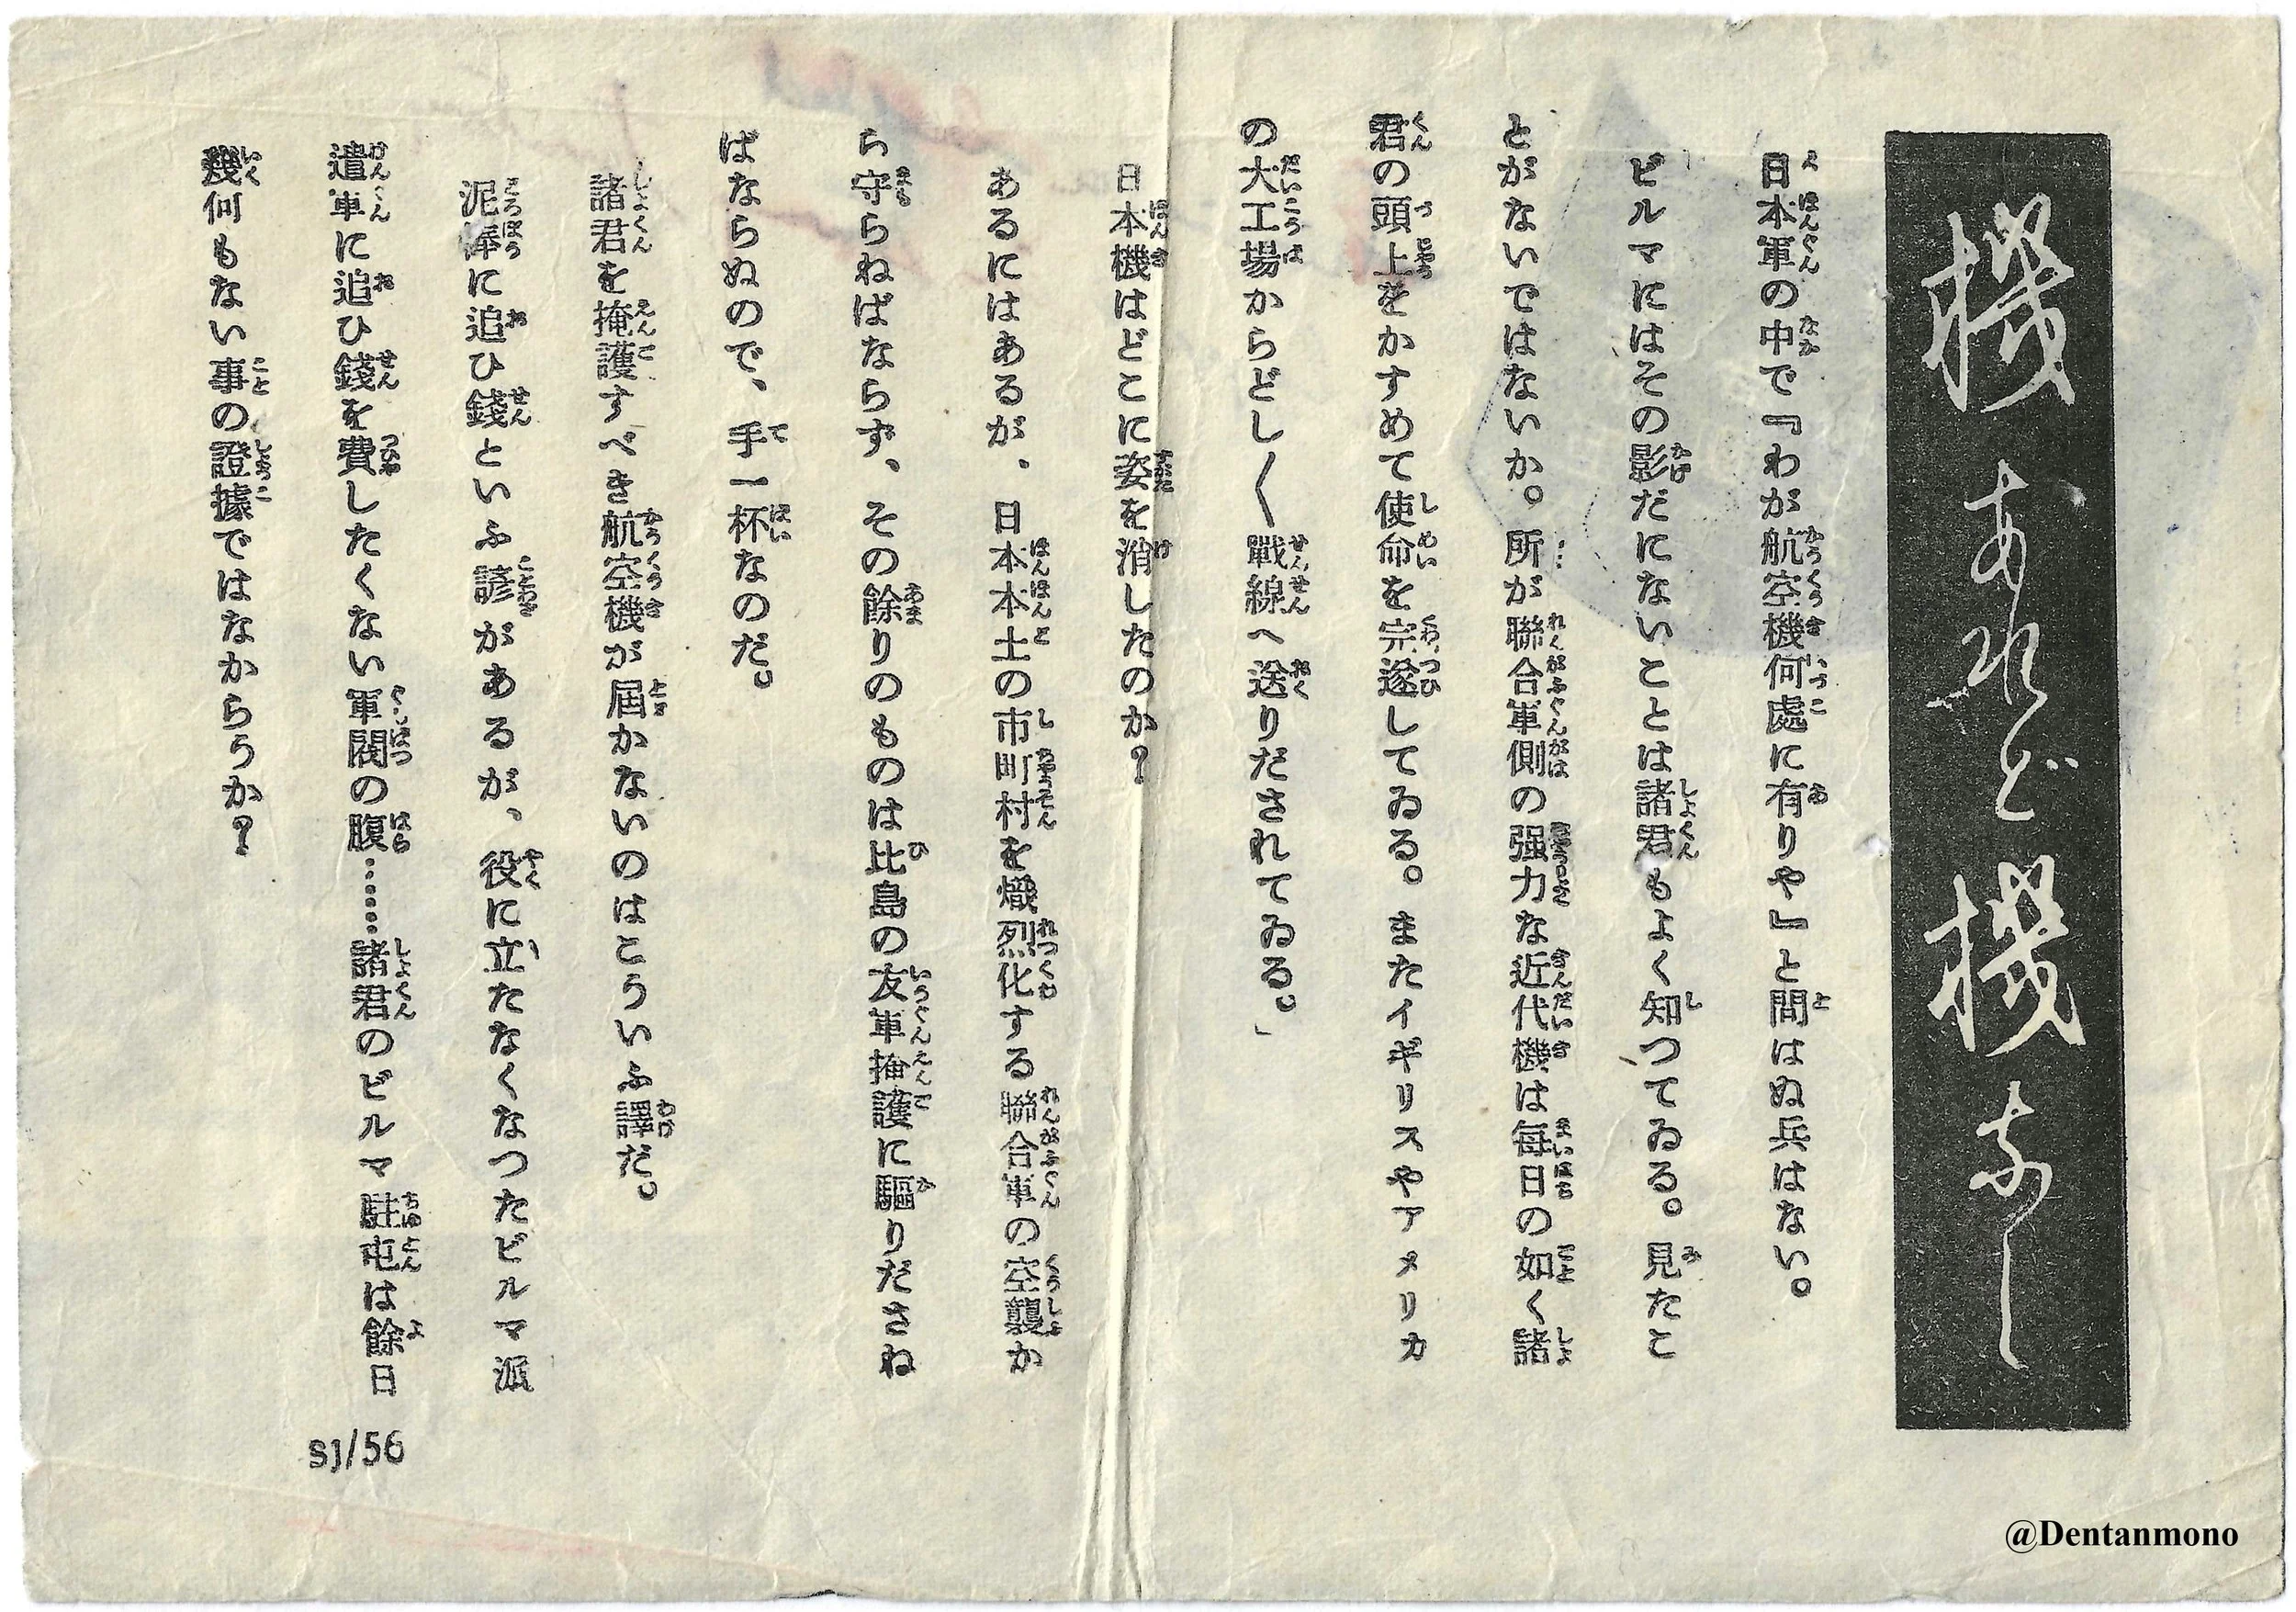 機あれど機なし
日本軍の中で『わが航空機何處に有りや』と問はぬ兵はない。
ビルマにはその影だにないことは諸君もよく知つてゐる。見たこ
とがないではないか。所が聯合軍側の强力な近代機は毎日の如く諸
君の頭上をかすめて使命を完遂してゐる。またイギリスやアメリカ
の大工場からどし〱戰線へ送りだされてゐる。」
日本機はどこに姿を消したのか?
あるにはあるが、日本本土の市町村を熾烈化する聯合軍の空襲か
ら守らねばならず、その餘りのものは比島の友軍掩護に驅りださね
ばならぬので、手一杯なのだ。
諸君を掩護すべき航空機が屆かないのはこういふ譯だ。
泥棒に追ひ錢といふ諺があるが、役に立たなくなつたビルマ派
遣軍に追ひ錢を費したくない軍閥の腹……諸君のビルマ駐屯は餘日
幾何もない事の證據ではなからうか?
SJ/56
@Dentanmono